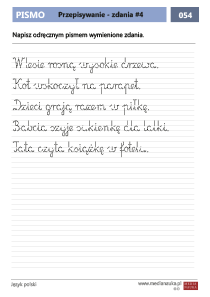 PISMO Przepisywanie - zdania #4 054
Napisz odręcznym pismem wymienione zdania.
W lesie rosną wysokie drzewa.
Kot wskoczył na parapet.
Dzieci grają razem w piłkę.
Babcia szyje sukienkę dla lalki.
Tata czyta książkę w fotelu.
Język polski www.mediananauka.pl